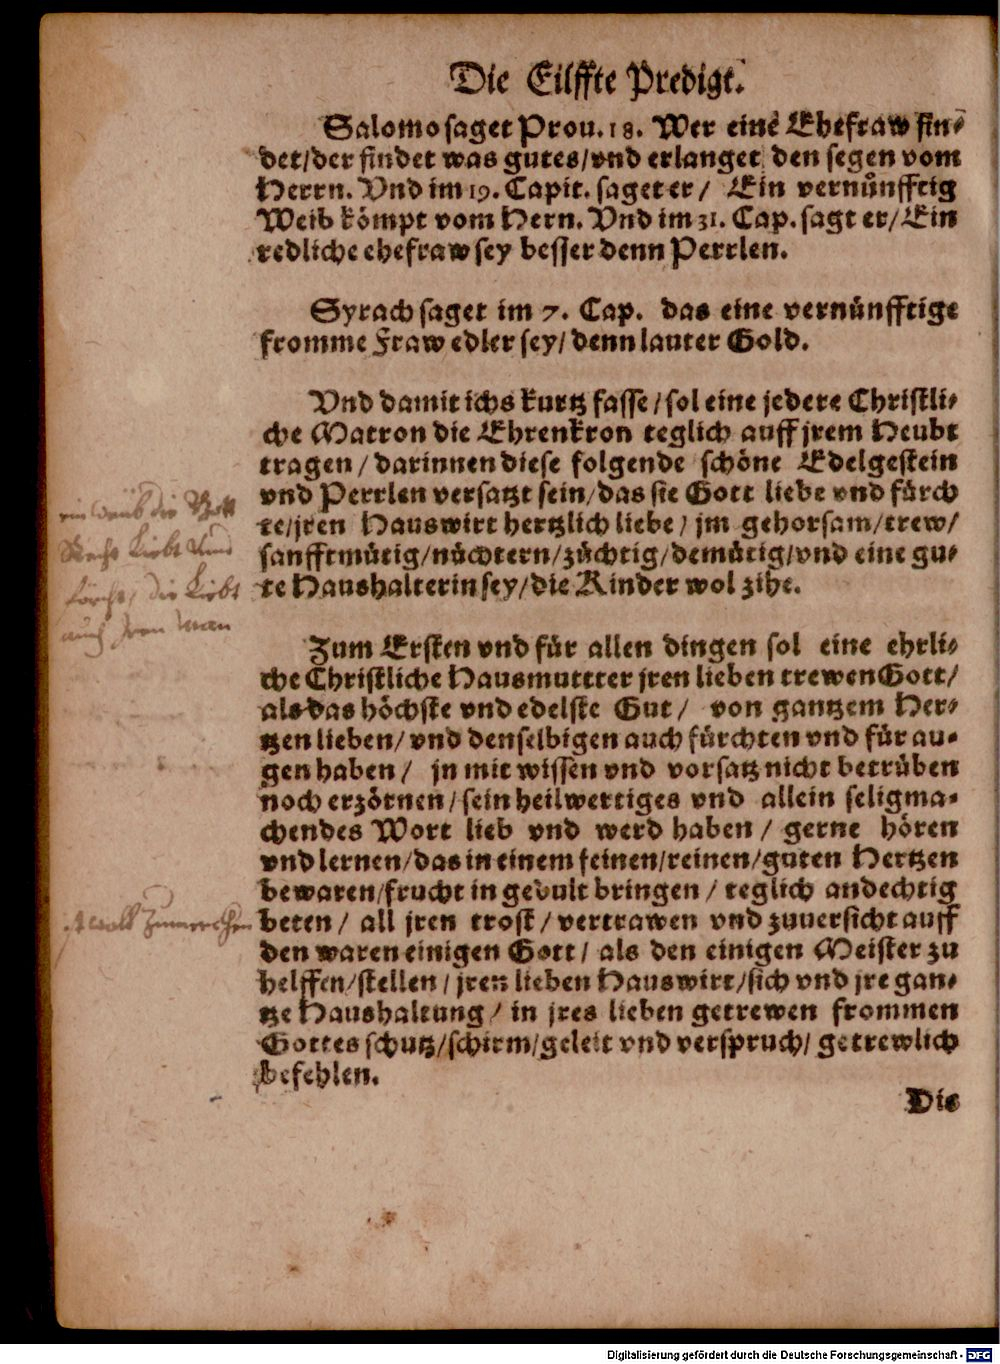 Die Eilffte Predigt.
Salomo saget Prou. 18. Wer eine Ehefraw fin-
det/der findet was gutes/vnd erlanget den segen vom
Herrn. Vnd im 19. Capit. saget er/ Ein vernünfftig
Weib kömpt vom Hern. Vnd im 31. Cap. sagt er/Ein
redliche ehefraw sey besser denn Perrlen.
Syrach saget im 7. Cap. das eine vernünfftige
fromme Fraw edler sey/denn lauter Gold.
Vnd damit ichs kurtz fasse/sol eine jedere Christli-
che Matron die Ehrenkron teglich auff jrem Heubt
tragen/darinnen diese folgende schöne Edelgestein
vnd Perrlen versatzt sein/das sie Gott liebe vnd fürch
te/jren Hauswirt hertzlich liebe/jm gehorsam/trew/
sanfftmütig/nüchtern/züchtig/demütig/vnd eine gu-
te Haushalterin sey/die Kinder wol zihe.
ein weib die Gott
Recht Liebt Und
förcht/ die Liebt
auch Jren Man
Zum Ersten vnd für allen dingen sol eine ehrli-
che Christliche Hausmuttter jren lieben trewen Gott/
als das höchste vnd edelste Gut/ von gantzem Her-
tzen lieben/vnd denselbigen auch fürchten vnd für au-
gen haben/ jn mit wissen vnd vorsatz nicht betrüben
noch erzörnen/sein heilwertiges vnd allein seligma-
chendes Wort lieb vnd werd haben/ gerne hören
vnd lernen/das in einem feinen/reinen/guten Hertzen
bewaren/frucht in gedult bringen/teglich andechtig
beten/ all jren trost/vertrawen vnd zuuersicht auff
den waren einigen Gott/ als den einigen Meister zu
helffen/stellen/jren lieben Hauswirt/sich vnd jre gan-
tze Haushaltung/ in jres lieben getrewen frommen
Gottes schutz/schirm/geleit vnd verspruch/getrewlich
befehlen.
Die
Digitalisierung gefördert durch die Deutsche Forschungsgemeinschaft - DFG